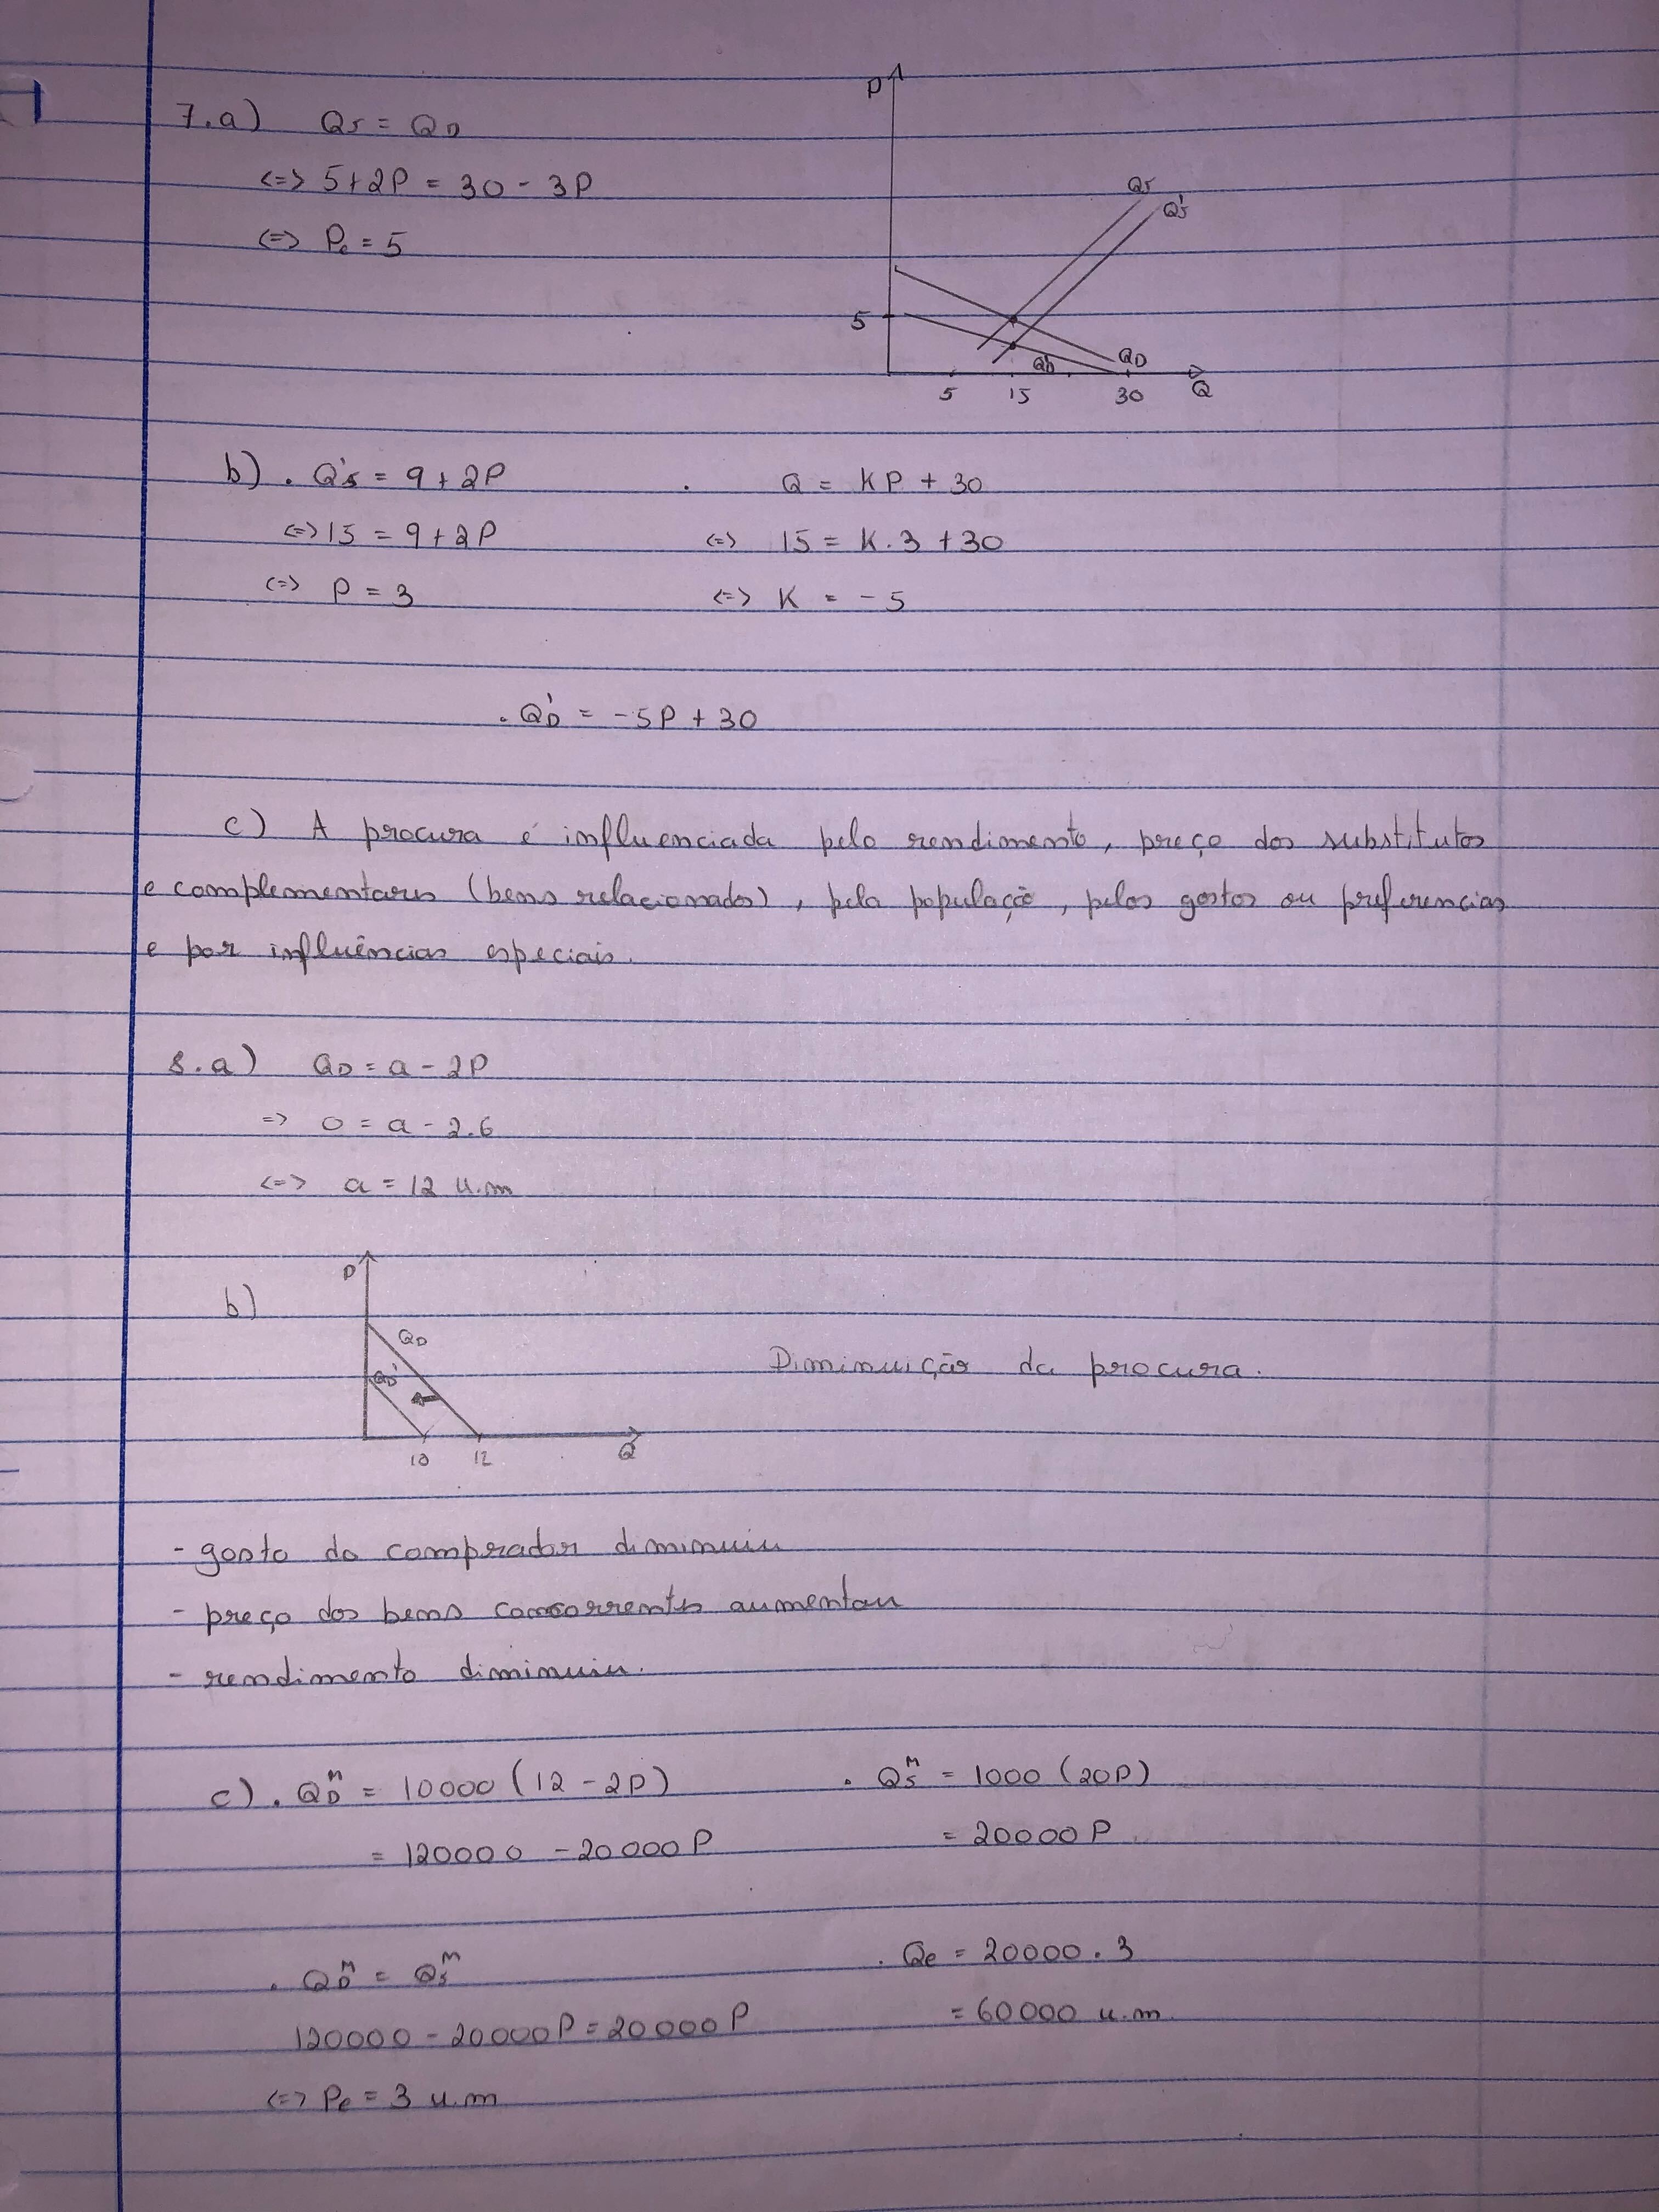 7.a) Qs = QD
<=> 5+2P = 30 - 3P
<=> Pe = 5
P
Qs
Q's
5
QD
Q'D
5 15 30 Q
b) . Q's = 9 + 2P . Q = KP + 30
<=> 15 = 9 + 2P <=> 15 = K.3 + 30
<=> P = 3 <=> K = -5
. Q'D = -5P + 30
c) A procura é influenciada pelo rendimento, preço dos substitutos
e complementares (bens relacionados), pela população, pelos gostos ou preferencias
e por influências especiais.
8.a) QD = a - 2P
=> 0 = a - 2.6
<=> a = 12 u.m
b)
P
QD
QD'
10 12 Q
Diminuição da procura.
- gosto do comprador diminuiu
- preço dos bens concorrentes aumentou
- rendimento diminuiu.
c) . QD^M = 10000 (12 - 2P) . Qs^M = 1000 (20P)
= 120000 - 20000P = 20000P
. QD^M = Qs^M . Qe = 20000.3
120000 - 20000P = 20000P = 60000 u.m.
<=> Pe = 3 u.m